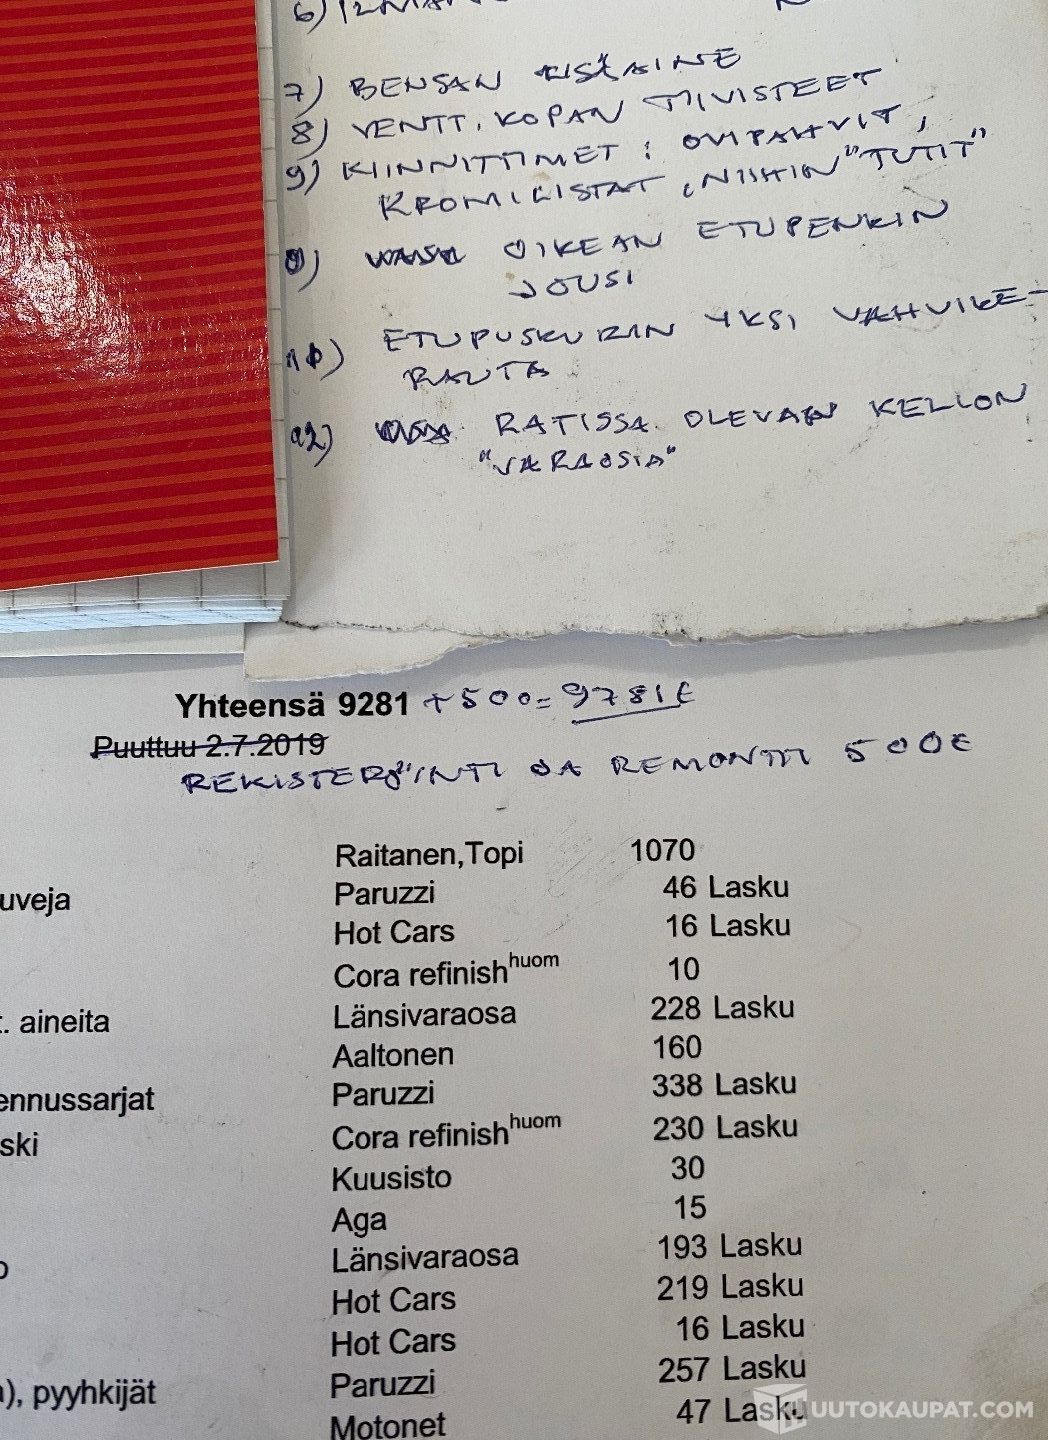 6)
7) BENSAN LISÄAINE
8) VENTT. KOPAN TIIVISTEET
9) KIINNITTIMET: OVIPAHVIT,
KROMILISTAT, NIIHIN "TUTIT"
OIKEAN ETUPENKIN
JOUSI
ETUPUSKURIN YKSI VAHVIKE-
RAUTA
12) RATISSA OLEVAN KELLON
"VARAOSIA"
Yhteensä 9281 + 500 = 9781 €
Puuttuu 2.7.2019
REKISTERÖINTI JA REMONTTI 500€
Raitanen,Topi 1070
uveja Paruzzi 46 Lasku
Hot Cars 16 Lasku
Cora refinish huom 10
t. aineita Länsivaraosa 228 Lasku
Aaltonen 160
ennussarjat Paruzzi 338 Lasku
ski Cora refinish huom 230 Lasku
Kuusisto 30
Aga 15
o Länsivaraosa 193 Lasku
Hot Cars 219 Lasku
Hot Cars 16 Lasku
), pyyhkijät Paruzzi 257 Lasku
Motonet 47 Lasku
HUUTOKAUPAT.COM